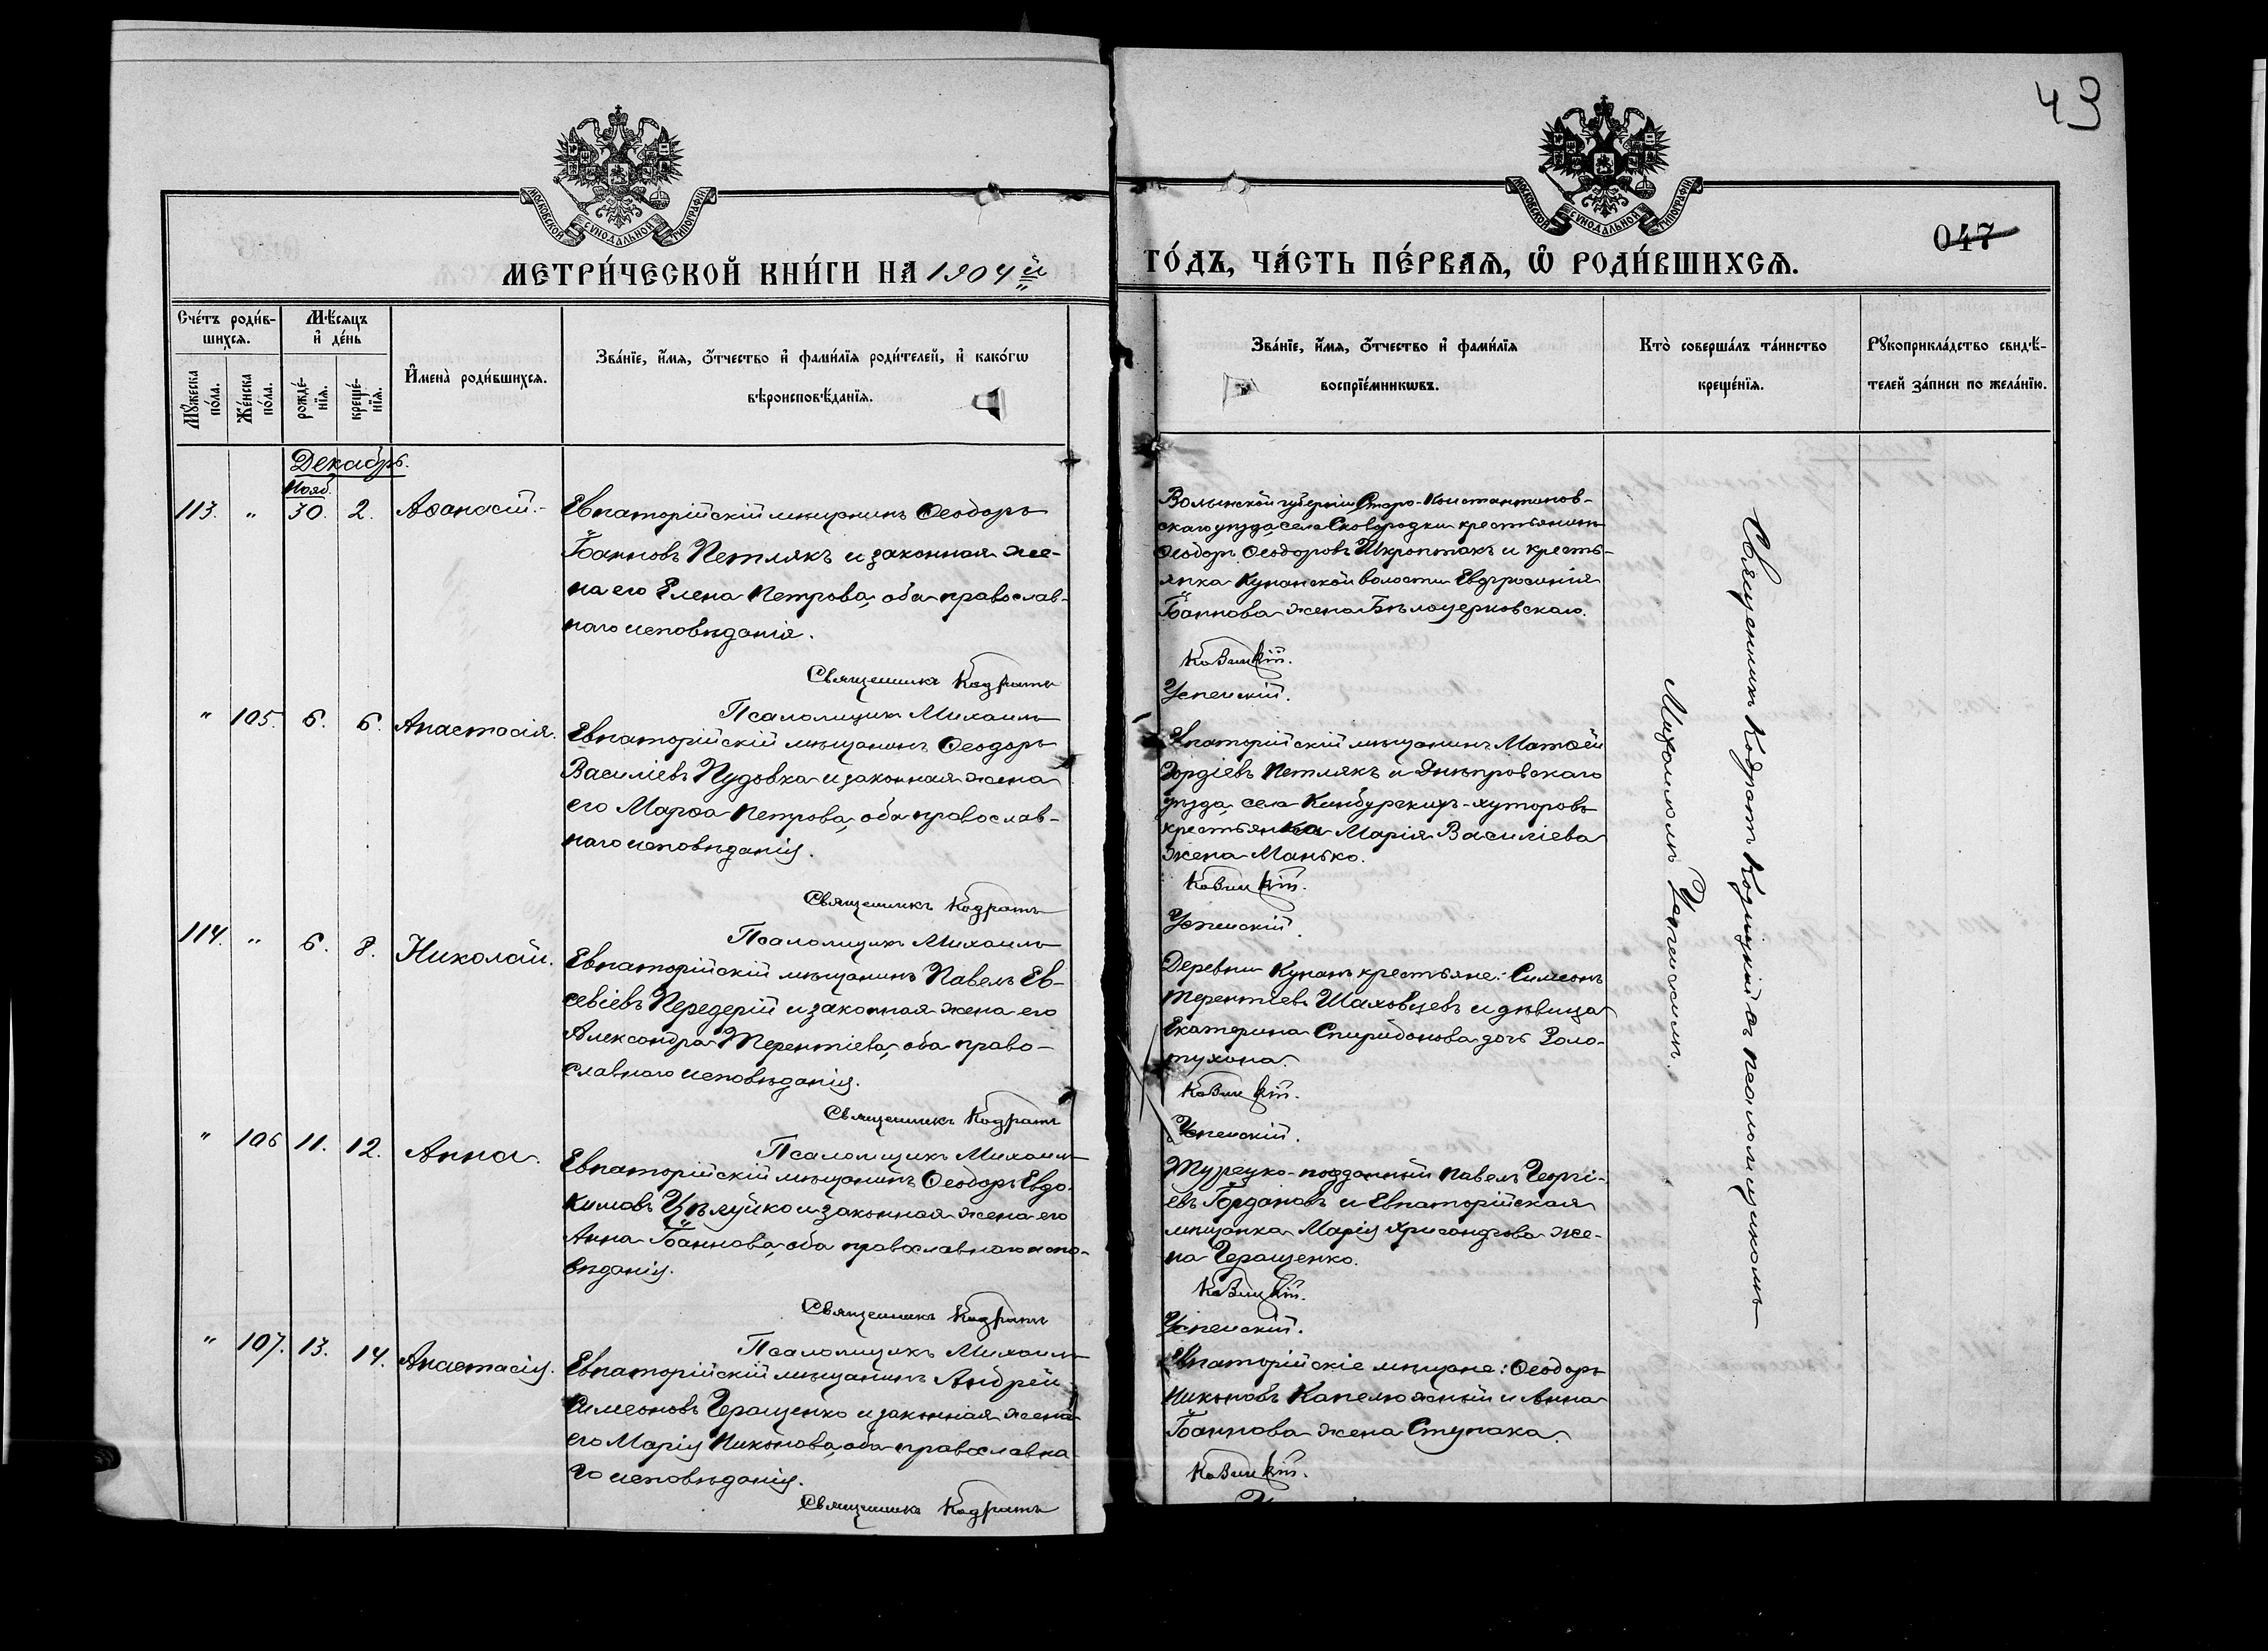 43
МОСКОВСКОЙ СѴНОДАЛЬНОЙ ТИПОГРАФІИ
МОСКОВСКОЙ СѴНОДАЛЬНОЙ ТИПОГРАФІИ
047
МЕТРИ́ЧЕСКОЙ КНИ́ГИ НА 1904 й
ГО́ДЪ, ЧА́СТЬ ПЕ́РВАЯ, Ѽ РОДИ́ВШИХСЯ.
Сче́тъ роди́в-
шихся.
Мѣ́сяцъ
и де́нь
Мꙋ́жеска по́ла.
Же́нска по́ла.
рожде́-
нїя.
креще́-
нїя.
Имена̀ роди́вшихся.
Зва́нїе, и́мя, ѻ́тчество и фами́лїя роди́телей, и како́гѡ
вѣроисповѣ́данїя.
Зва́нїе, и́мя, ѻ́тчество и фами́лїя
воспрїе́мникѡвъ.
Кто̀ соверша́лъ та́инство
креще́нїя.
Рꙋкоприкла́дство свидѣ́-
телей за́писи по жела́нїю.
Декабрь.
Нояб.
113. " 30. 2. Аѳанасій.
Евпаторійскій мѣщанинъ Ѳеодоръ
Іоанновъ Петлякъ и законная же-
на его Елена Петрова, оба православ-
наго исповѣданія.
Священникъ Кодратъ
Псаломщикъ Михаилъ
Волынской губерніи Старо-Константинов-
скаго уѣзда, села Сковородки крестьянинъ
Ѳеодоръ Ѳеодоровъ Шкроптакъ и кресть-
янка Кунанской волости Евдросинія
Іоаннова жена Бѣлоцерковскаго.
Козицкій.
Успенскій.
" 105. 6. 6. Анастасія.
Евпаторійскій мѣщанинъ Ѳеодоръ
Василіевъ Пудовка и законная жена
его Марѳа Петрова, оба православ-
наго исповѣданія.
Священникъ Кодратъ
Псаломщикъ Михаилъ
Евпаторійскій мѣщанинъ Матѳей
Гордіевъ Петлякъ и Днѣпровскаго
уѣзда, села Кинбурскихъ-хуторовъ
крестьянка Марія Василіева
жена Манько.
Козицкій.
Успенскій.
114. " 6. 8. Николай.
Евпаторійскій мѣщанинъ Павелъ Ев-
севіевъ Передерій и законная жена его
Александра Терентіева, оба право-
славнаго исповѣданія.
Священникъ Кодратъ
Псаломщикъ Михаилъ
Деревни Кунанъ крестьяне: Симеонъ
Терентіевъ Шаховцевъ и дѣвица
Екатерина Спиридонова дочь Золо-
тухина.
Козицкій.
Успенскій.
" 106 11. 12. Анна.
Евпаторійскій мѣщанинъ Ѳеодоръ Евдо-
кимовъ Цѣлуйко и законная жена его
Анна Іоаннова, оба православнаго испо-
вѣданія.
Священникъ Кодратъ
Псаломщикъ Михаилъ
Турецко-подданный Павелъ Георгі-
евъ Іордановъ и Евпаторійская
мѣщанка Марія Хрисандрова же-
на Геращенко.
Козицкій.
Успенскій.
" 107. 13. 14. Анастасія.
Евпаторійскій мѣщанинъ Андрей
Симеоновъ Геращенко и законная жена
его Марія Никонова, оба православна-
го исповѣданія.
Священникъ Кодратъ
Евпаторійскіе мѣщане: Ѳеодоръ
Никоновъ Капелюжный и Анна
Іоаннова жена Ступака.
Козицкій.
Священникъ Кодратъ Козицкій съ псаломщикомъ
Михаиломъ Успенскимъ.